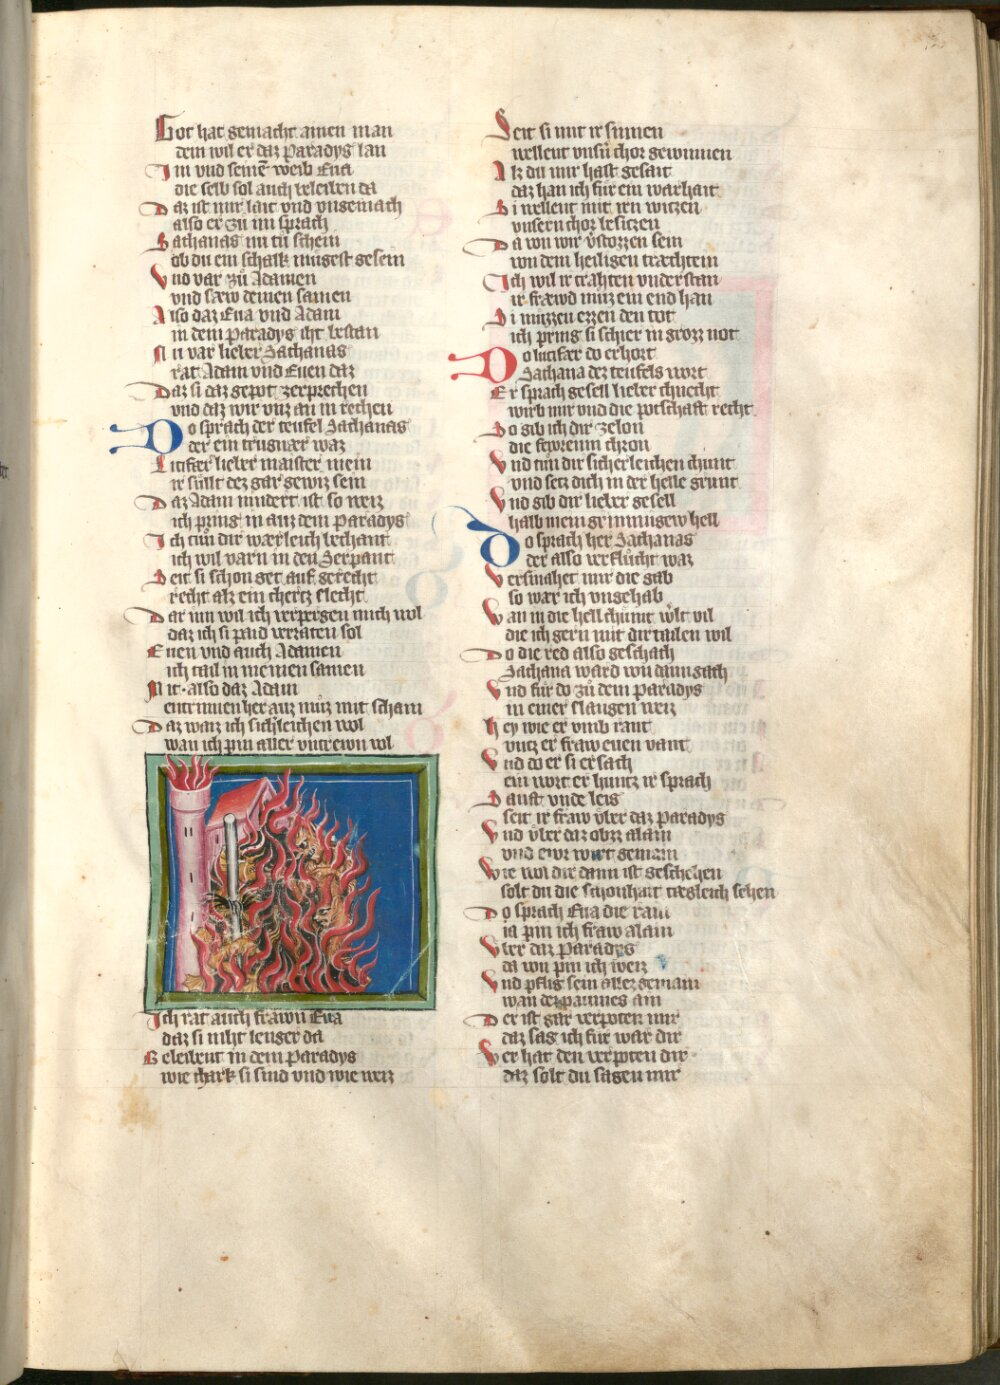 Got hat gemacht ainen man
dem wil er daz Paradys lan
Im vnd seinē weib Eua
die selb sol auch beleiben da
Daz ist mir lait vnd vngemach
also er zu im sprach
Sathanas nu tů schein
ob du ein schalk mügest gesein
Vnd var zů Adamen
vnd sæw deinen samen
Also daz Eua vnd Adam
in dem Paradys iht bestan
Nu var lieber Sathanas
rat Adam vnd Euen daz
Daz si daz gepot zerprechen
vnd daz wir vnz an in rechen
Do sprach der teufel Sathanas
der ein trugnær waz
Lucifer lieber maister mein
ir sůllt dez gar gewiz sein
Daz Adam mindert ist so weiz
ich pring in auz dem Paradys
Ich tůn dir wærleich bechant
ich wil varn in den Serpant
Seit si schon get auf gerecht
recht alz ein chertz slecht
Dar inn wil ich verpergen mich wol
daz ich si paid verraten sol
Euen vnd auch Adamen
ich tail in meinen samen
Mit also daz Adam
entrinnen her auz můz mit scham
Daz waiz ich sichleichen wol
wan ich pin aller vntrewn vol
Ich rat auch frawn Eua
daz si niht lenger da
Beleibent in dem Paradys
wie chark si sind vnd wie weiz
Seit si mit ir sinnen
wellent vnsn̄ chor gewinnen
Alz du mir hast gesait
daz han ich für ein warhait
Si wellent mit irn witzen
vnsern chor besitzen
Da von wir v̊stozzen sein
von dem heiligen træchtein
Ich wil ir trahten vnderstan
ir fræwd můz ein end han
Si můzzen ezzen den tot
ich pring si schier in grozz not
Do lucifer do erhort
Sathana dez teufels wort
Er sprach gesell lieber chnecht
wirb mir vnd die potschaft recht
So gib ich dir ze lon
die fewrenn chron
Vnd tůn dir sicherleichen chunt
vnd setz dich in der helle grunt
Vnd gib dir lieber gesell
halb mein grimmigew hell
Do sprach her Sathanas
der also verflůcht waz
Versmahet mir die gab
so wær ich vngehab
Wan in die hell chumt volk vil
die ich gern mit dir tailen wil
Do die red also geschach
Sathana ward von dann gach
Vnd für do zů dem Paradys
in einer slangen weiz
Hey wie er vmb rant
vntz er fraw euen vant
Vnd do er si ersach
ein wort er hintz ir sprach
Sanft vnde leis
seit ir fraw vber daz Paradys
Vnd vber daz obz alain
vnd ewr wirt gemain
Wie wol dir dann ist geschehen
solt du die schonhait tægleich sehen
Do sprach Eua die rain
ia pin ich fraw alain
Vber daz Paradys
da von pin ich weiz
Vnd pflig sein allez gemain
wan dez paumes ain
Der ist gar verpoten mir
daz sag ich für war dir
Wer hat den verpoten dir
daz solt du sagen mir